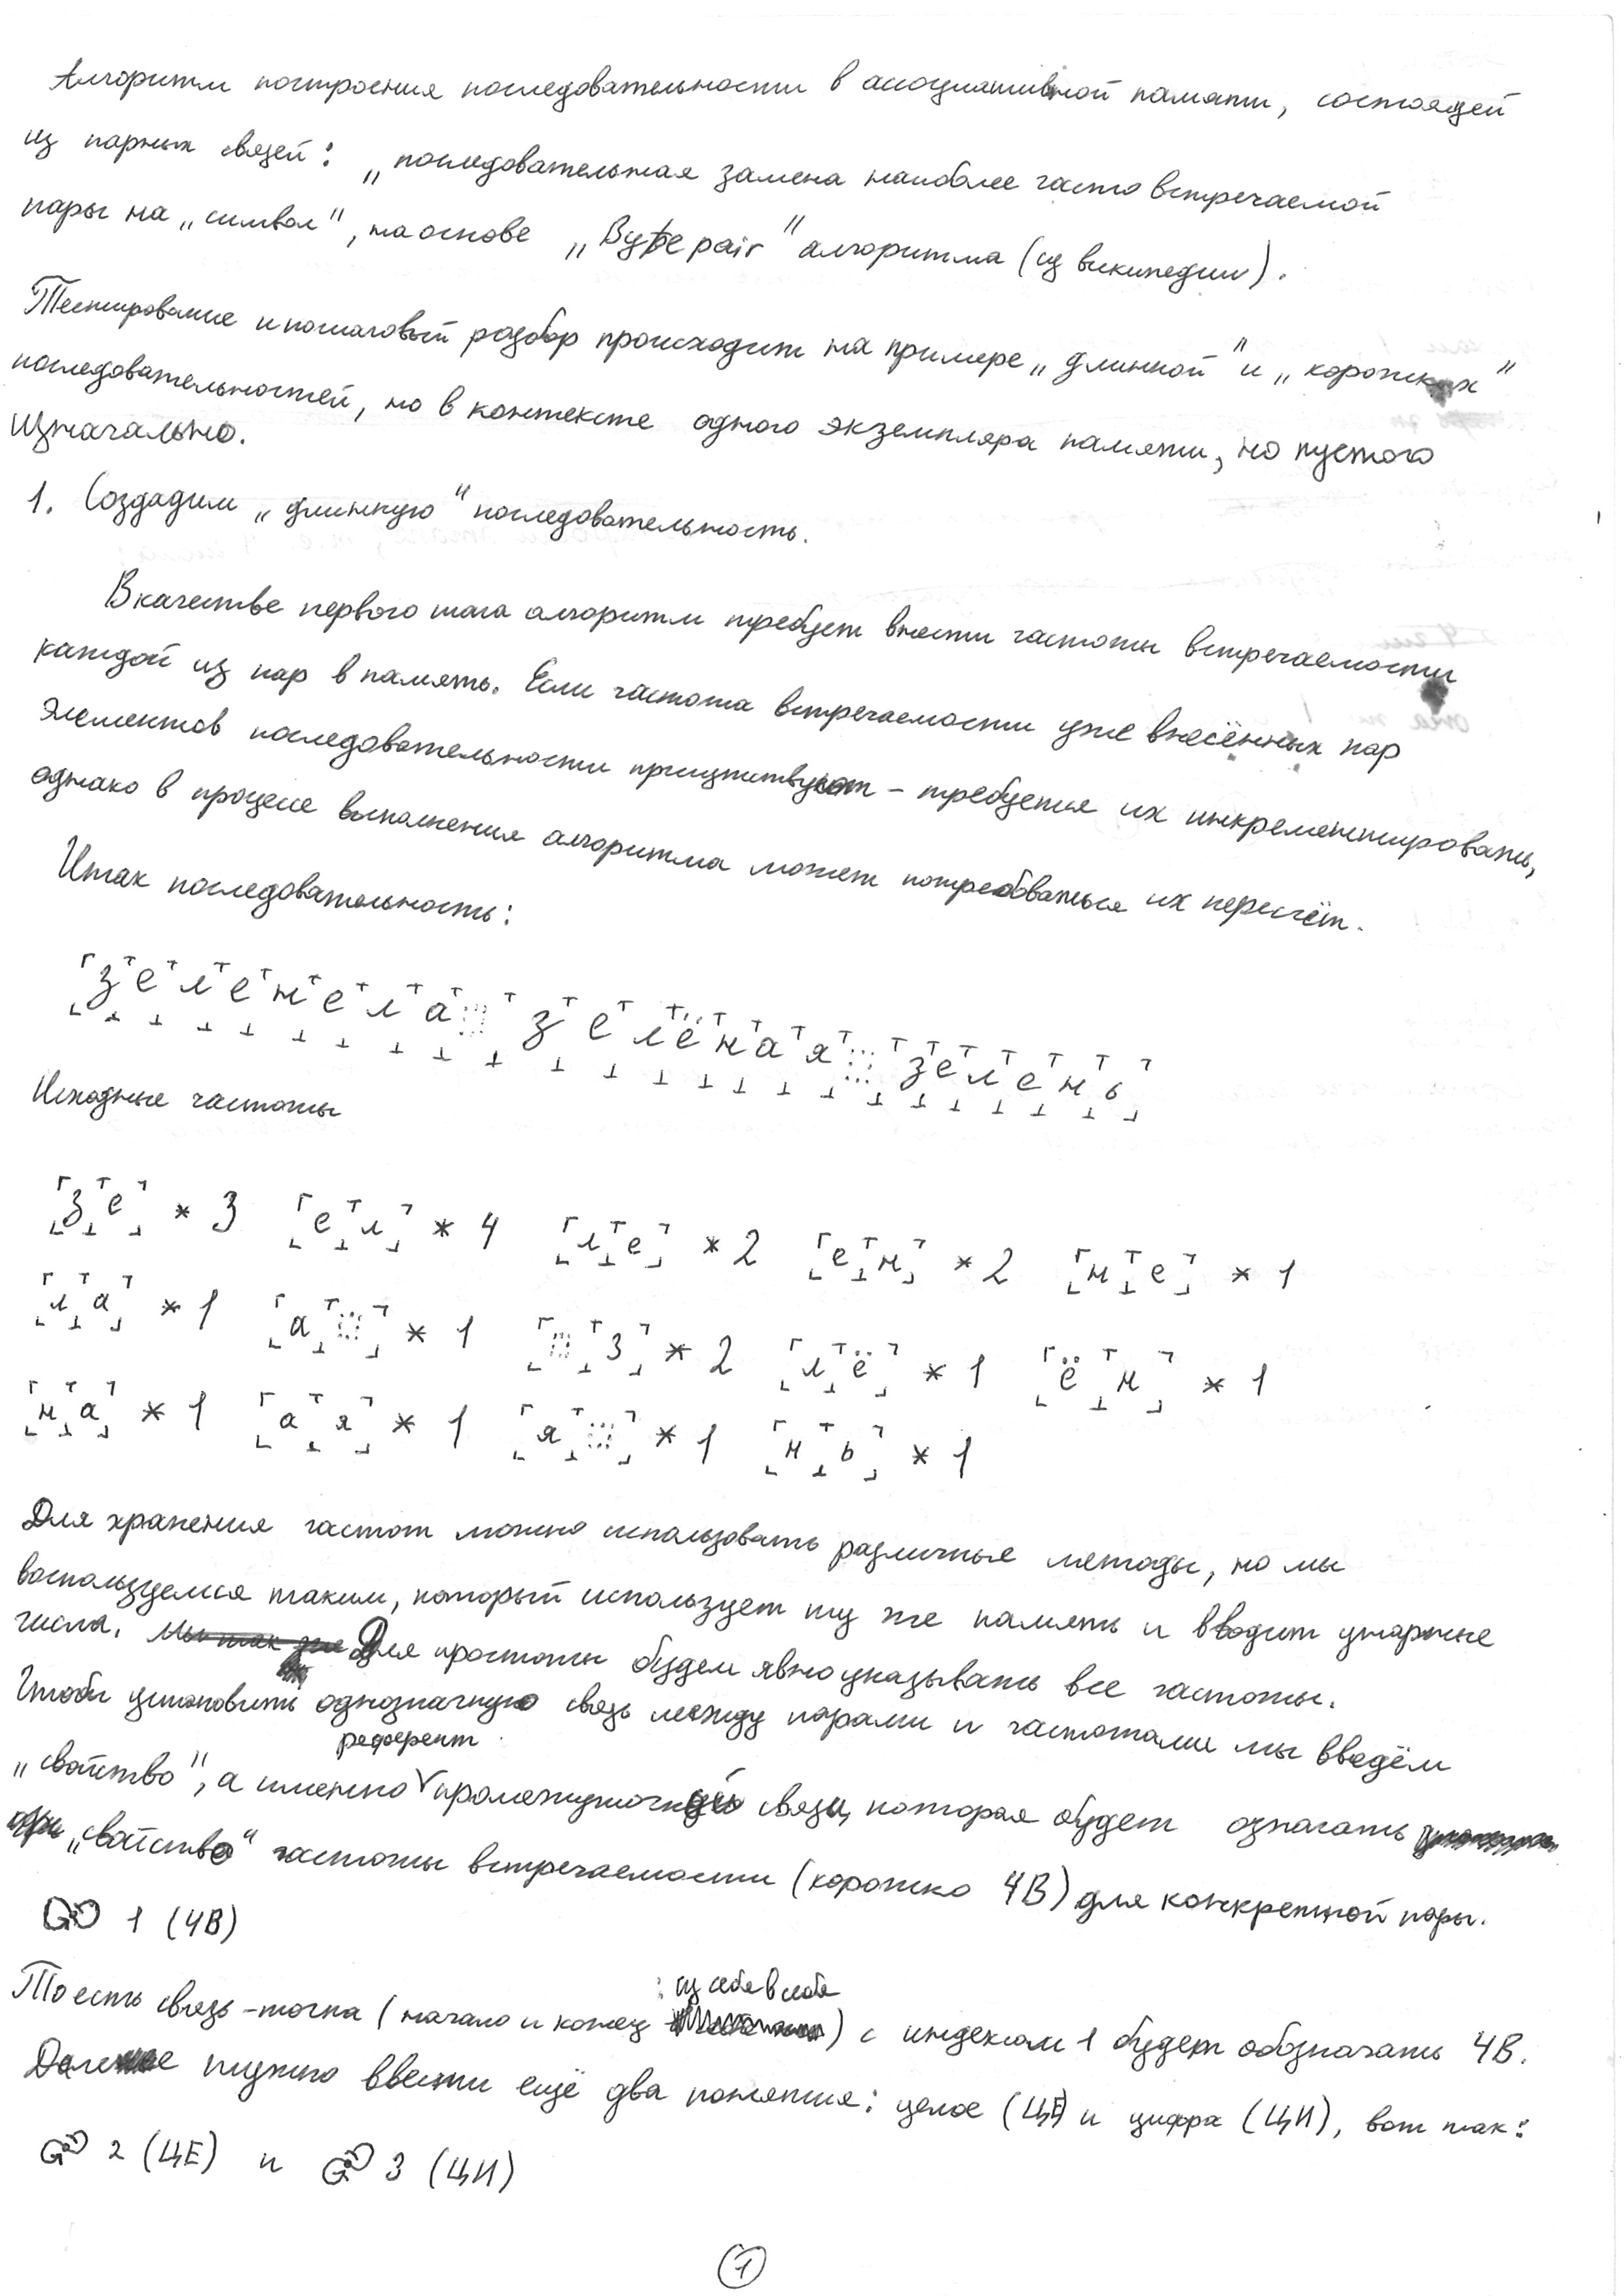 Алгоритм построения последовательности в ассоциативной памяти, состоящей
из парных связей: „последовательная замена наиболее часто встречаемой
пары на „символ", на основе „Byte pair" алгоритма (из википедии).
Тестирование и пошаговый разбор происходит на примере „длинной" и „коротких"
последовательностей, но в контексте одного экземпляра памяти, но пустого
изначально.
1. Создадим „длинную" последовательность.
В качестве первого шага алгоритм требует внести частоты встречаемости
каждой из пар в память. Если частота встречаемости уже внесённых пар
элементов последовательности присутствуют – требуется их инкрементировать,
однако в процессе выполнения алгоритма может потребоваться их пересчёт.
Итак последовательность:
зеленела зелёная зелень
Исходные частоты
зе * 3 ел * 4 ле * 2 ен * 2 не * 1
ла * 1 а□ * 1 □з * 2 лё * 1 ён * 1
на * 1 ая * 1 я□ * 1 нь * 1
Для хранения частот можно использовать различные методы, но мы
воспользуемся таким, который использует ту же память и вводит унарные
числа. Для простоты будем явно указывать все частоты.
Чтобы установить однозначную связь между парами и частотами мы введём
„свойство", а именно референт промежуточной связи, которая будет означать
„свойство" частоты встречаемости (коротко ЧВ) для конкретной пары.
1 (ЧВ)
То есть связь-точка (начало и конец : из себя в себя) с индексом 1 будет обозначать ЧВ.
Далее нужно ввести ещё два понятия: целое (ЦЕ) и цифра (ЦИ), вот так:
2 (ЦЕ) и 3 (ЦИ)
1